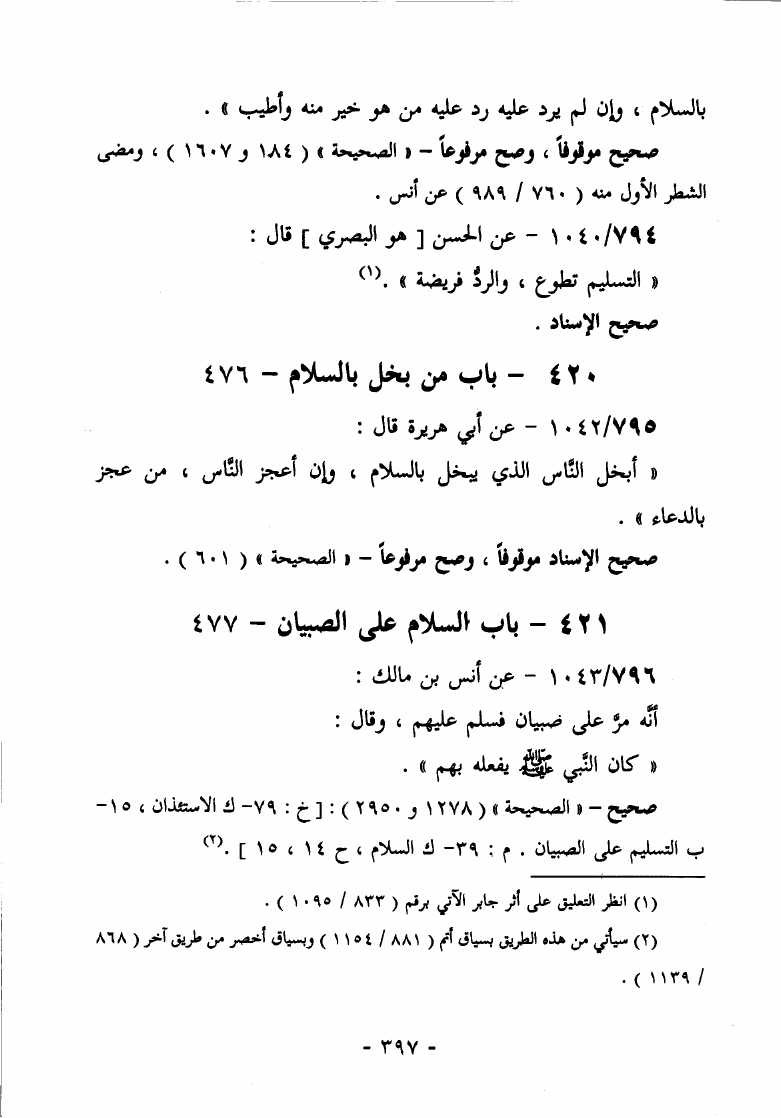 بالسلام ، وإن لم يرد عليه رد عليه من هو خير منه وأطيب » .
صحيح موقوفاً ، وصح مرفوعاً – « الصحيحة » ( ١٨٤ و ١٦٠٧ ) ، ومضى
الشطر الأول منه ( ٧٦٠ / ٩٨٩ ) عن أنس .
١٠٤٠/٧٩٤ – عن الحسن [ هو البصري ] قال :
« التسليم تطوع ، والردُّ فريضة » .(١)
صحيح الإسناد .
٤٢٠ – باب من بخل بالسلام – ٤٧٦
١٠٤٢/٧٩٥ – عن أبي هريرة قال :
« أبخل النَّاس الذي يبخل بالسلام ، وإن أعجز النَّاس ، من عجز
بالدعاء » .
صحيح الإسناد موقوفاً ، وصح مرفوعاً – « الصحيحة » ( ٦٠١ ) .
٤٢١ – باب السلام على الصبيان – ٤٧٧
١٠٤٣/٧٩٦ – عن أنس بن مالك :
أنَّه مرَّ على صبيان فسلم عليهم ، وقال :
« كان النَّبي ﷺ يفعله بهم » .
صحيح – « الصحيحة » ( ١٢٧٨ و ٢٩٥٠ ) : [ خ : ٧٩– ك الاستئذان ، ١٥–
ب التسليم على الصبيان . م : ٣٩– ك السلام ، ح ١٤ ، ١٥ ] .(٢)
(١) انظر التعليق على أثر جابر الآتي برقم ( ٨٣٣ / ١٠٩٥ ) .
(٢) سيأتي من هذه الطريق بسياق أتم ( ٨٨١ / ١١٥٤ ) وبسياق أخصر من طريق آخر ( ٨٦٨
/ ١١٣٩ ) .
- ٣٩٧ -